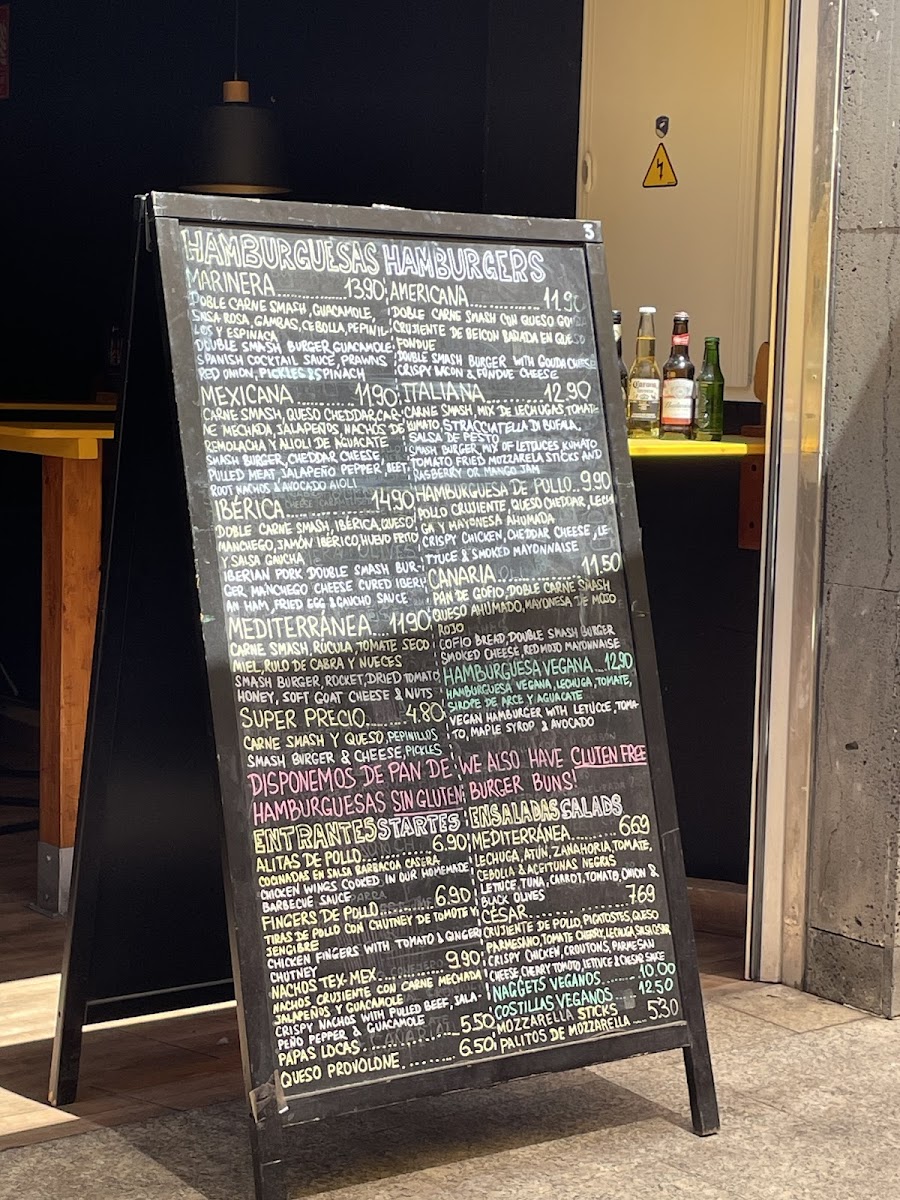 3
HAMBURGUESAS HAMBURGERS
MARINERA.................13,90
DOBLE CARNE SMASH, GUACAMOLE,
SALSA ROSA, GAMBAS, CEBOLLA, PEPINIL-
LOS Y ESPINACA
DOUBLE SMASH BURGER, GUACAMOLE
SPANISH COCKTAIL SAUCE, PRAWNS,
RED ONION, PICKLES & SPINACH
MEXICANA..............11,90
CARNE SMASH, QUESO CHEDDAR, CAR-
NE MECHADA, JALAPEÑOS, NACHOS DE
REMOLACHA Y ALIOLI DE AGUACATE
SMASH BURGER, CHEDDAR CHEESE,
PULLED MEAT, JALAPEÑO PEPPER, BEET,
ROOT NACHOS & AVOCADO AIOLI
IBÉRICA.................14,90
DOBLE CARNE SMASH, IBÉRICA, QUESO
MANCHEGO, JAMÓN IBÉRICO, HUEVO FRITO
Y SALSA GAUCHA
IBERIAN PORK DOUBLE SMASH BUR-
GER MANCHEGO CHEESE CURED IBERI-
AN HAM, FRIED EGG & GAUCHO SAUCE
MEDITERRÁNEA....11,90
CARNE SMASH, RÚCULA, TOMATE SECO
MIEL, RULO DE CABRA Y NUECES
SMASH BURGER, ROCKET, DRIED TOMATO
HONEY, SOFT GOAT CHEESE & NUTS
SUPER PRECIO........4.80
CARNE SMASH Y QUESO, PEPINILLOS
SMASH BURGER & CHEESE, PICKLES
AMERICANA................11,90
DOBLE CARNE SMASH CON QUESO GOUDA
CRUJIENTE DE BEICON BAÑADA EN QUESO
FONDUE
DOUBLE SMASH BURGER WITH GOUDA CHEESE
CRISPY BACON & FONDUE CHEESE
ITALIANA.................12,90
CARNE SMASH, MIX DE LECHUGAS, TOMATE
KUMATO, STRACCIATELLA DI BUFALA,
SALSA DE PESTO
SMASH BURGER, MIX OF LETTUCES KUMATO
TOMATO FRIED MOZZARELA STICKS AND
RASBERRY OR MANGO JAM
HAMBURGUESA DE POLLO..9,90
POLLO CRUJIENTE, QUESO CHEDDAR, LECHU
GA Y MAYONESA AHUMADA
CRISPY CHICKEN, CHEDDAR CHEESE, LE
TTUCE & SMOKED MAYONNAISE
CANARIA...................11,50
PAN DE GOFIO, DOBLE CARNE SMASH
QUESO AHUMADO, MAYONESA DE MOJO
ROJO
GOFIO BREAD, DOUBLE SMASH BURGER
SMOKED CHEESE, RED MOJO MAYONNAISE
HAMBURGUESA VEGANA...12,90
HAMBURGUESA VEGANA, LECHUGA, TOMATE,
SIROPE DE ARCE Y AGUACATE
VEGAN HAMBURGER WITH LETUCCE, TOMA-
TO, MAPLE SYROP & AVOCADO
DISPONEMOS DE PAN DE
HAMBURGUESAS SIN GLUTEN
WE ALSO HAVE GLUTEN FREE
BURGER BUNS!
ENTRANTES STARTES
ALITAS DE POLLO..........6.90
COCINADAS EN SALSA BARBACOA CASERA
CHICKEN WINGS COOKED IN OUR HOMEMADE
BARBECUE SAUCE
FINGERS DE POLLO.........6.90
TIRAS DE POLLO CON CHUTNEY DE TOMATE Y
JENGIBRE
CHICKEN FINGERS WITH TOMATO & GINGER
CHUTNEY
NACHOS TEX-MEX..........9.90
NACHOS CRUJIENTE CON CARNE MECHADA
JALAPEÑOS Y GUACAMOLE
CRISPY NACHOS WITH PULLED BEEF, JALA-
PEÑO PEPPER & GUACAMOLE
PAPAS LOCAS............5.50
QUESO PROVOLONE..........6.50
ENSALADAS SALADS
MEDITERRÁNEA..........6.69
LECHUGA, ATÚN, ZANAHORIA, TOMATE,
CEBOLLA & ACEITUNAS NEGRAS
LETUCE, TUNA, CARROT, TOMATO, ONION &
BLACK OLIVES
CÉSAR.................7.69
CRUJIENTE DE POLLO, PICATOSTES, QUESO
PARMESANO, TOMATE CHERRY, LECHUGA, SALSA CÉSAR
CRISPY CHICKEN, CROUTONS, PARMESAN
CHEESE, CHERRY TOMATO, LETTUCE & CAESAR SAUCE
NAGGETS VEGANOS......10.00
COSTILLAS VEGANOS......12.50
MOZZARELLA STICKS
PALITOS DE MOZZARELLA....5.30
Corona